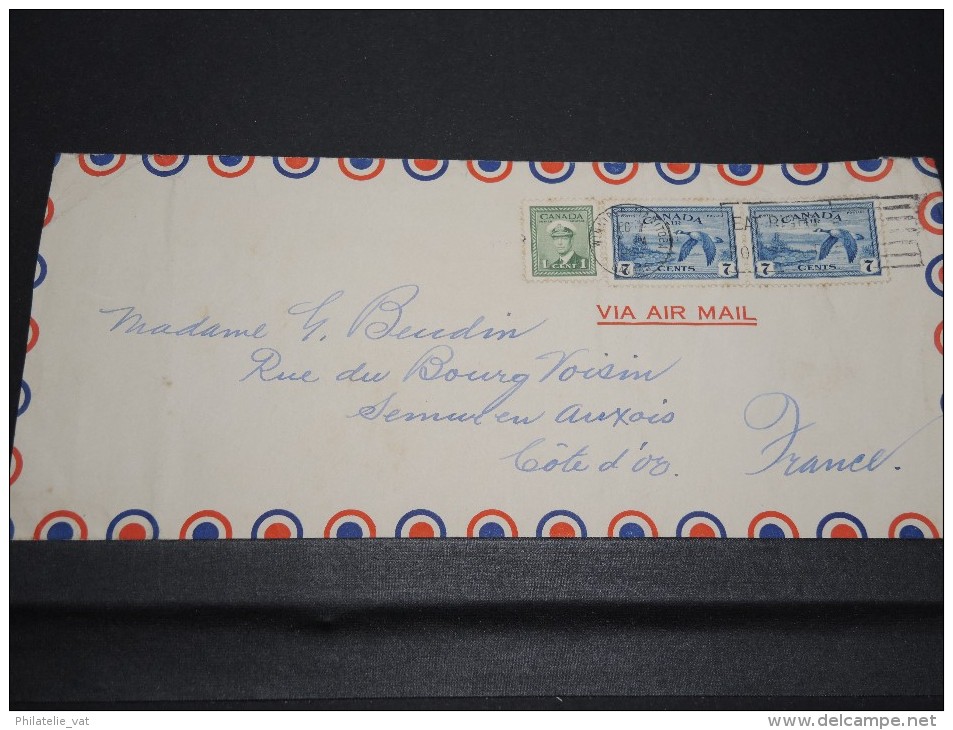 CANADA CANADA CANADA
1 CENT 1 7 CENTS 7 7 CENTS 7
VIA AIR MAIL
Madame G. Beudin
Rue du Bourg Voisin
Semur en Auxois
Côte d'Or. France.
Philatelie_vat
www.delcampe.net